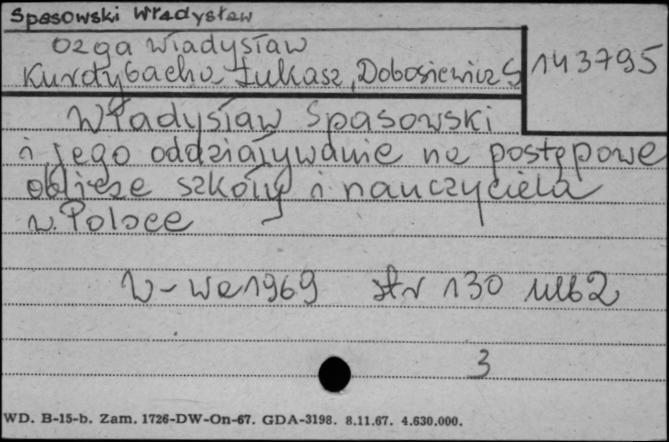 Spasowski Władysław
Ozga Władysław
Kurdybacha Łukasz, Dobosiewicz S
143795
Władysław Spasowski
i jego oddziaływanie na postępowe
oblicze szkoły i nauczyciela
w Polsce
W-wa 1969 str 130 nlb 2
3
WD. B-15-b. Zam. 1726-DW-On-67. GDA-3198. 8.11.67. 4.630.000.